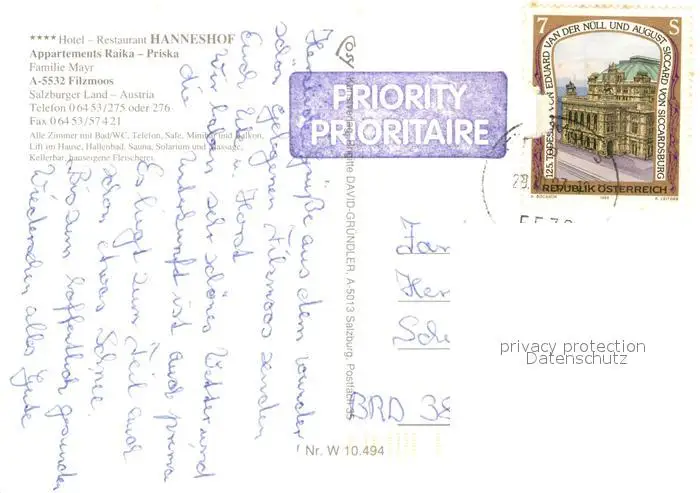 **** Hotel – Restaurant HANNESHOF
Appartements Raika – Priska
Familie Mayr
A-5532 Filzmoos
Salzburger Land – Austria
Telefon 0 64 53/275 oder 276
Fax 0 64 53/57 4 21
Alle Zimmer mit Bad/WC, Telefon, Safe, Balkon,
Lift im Hause, Hallenbad, Sauna, Solarium und Massage,
Kellerbar, hauseigene Fleischerei
Herzliche Grüße aus dem wunder-
schön gelegenen Filzmoos senden
Euch Horst
Wir haben sehr schönes Wetter und
die Unterkunft ist auch prima
Es liegt zum Teil auch
schon etwas Schnee.
Bis zum hoffentlich gesunden
Wiedersehen alles Gute
PRIORITY
PRIORITAIRE
Brigitte DAVID-GRÜNDLER, A-5013 Salzburg, Postfach 35
7 S
125. TODESTAG VON EDUARD VAN DER NÜLL UND AUGUST SICCARD VON SICCARDSBURG
REPUBLIK ÖSTERREICH
Fam
Her
Sch
BRD 38
privacy protection
Datenschutz
Nr. W 10.494